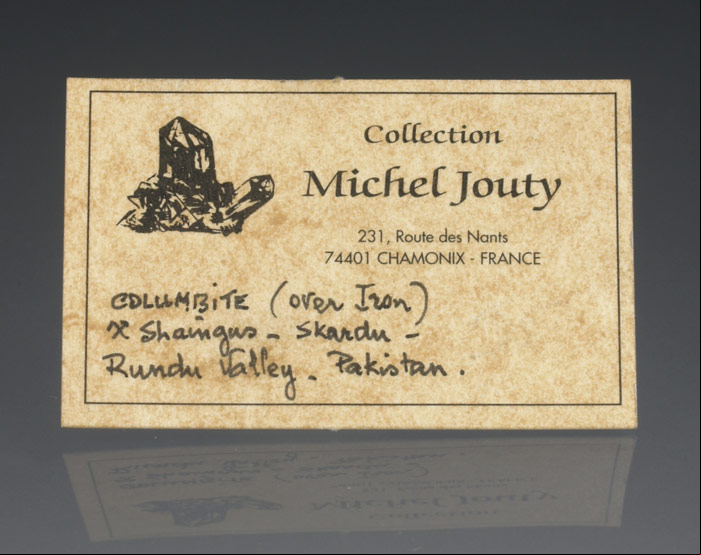 Collection
Michel Jouty
231, Route des Nants
74401 CHAMONIX - FRANCE
COLUMBITE (over Iron)
Shaingus - Skardu -
Rundu Valley - Pakistan.